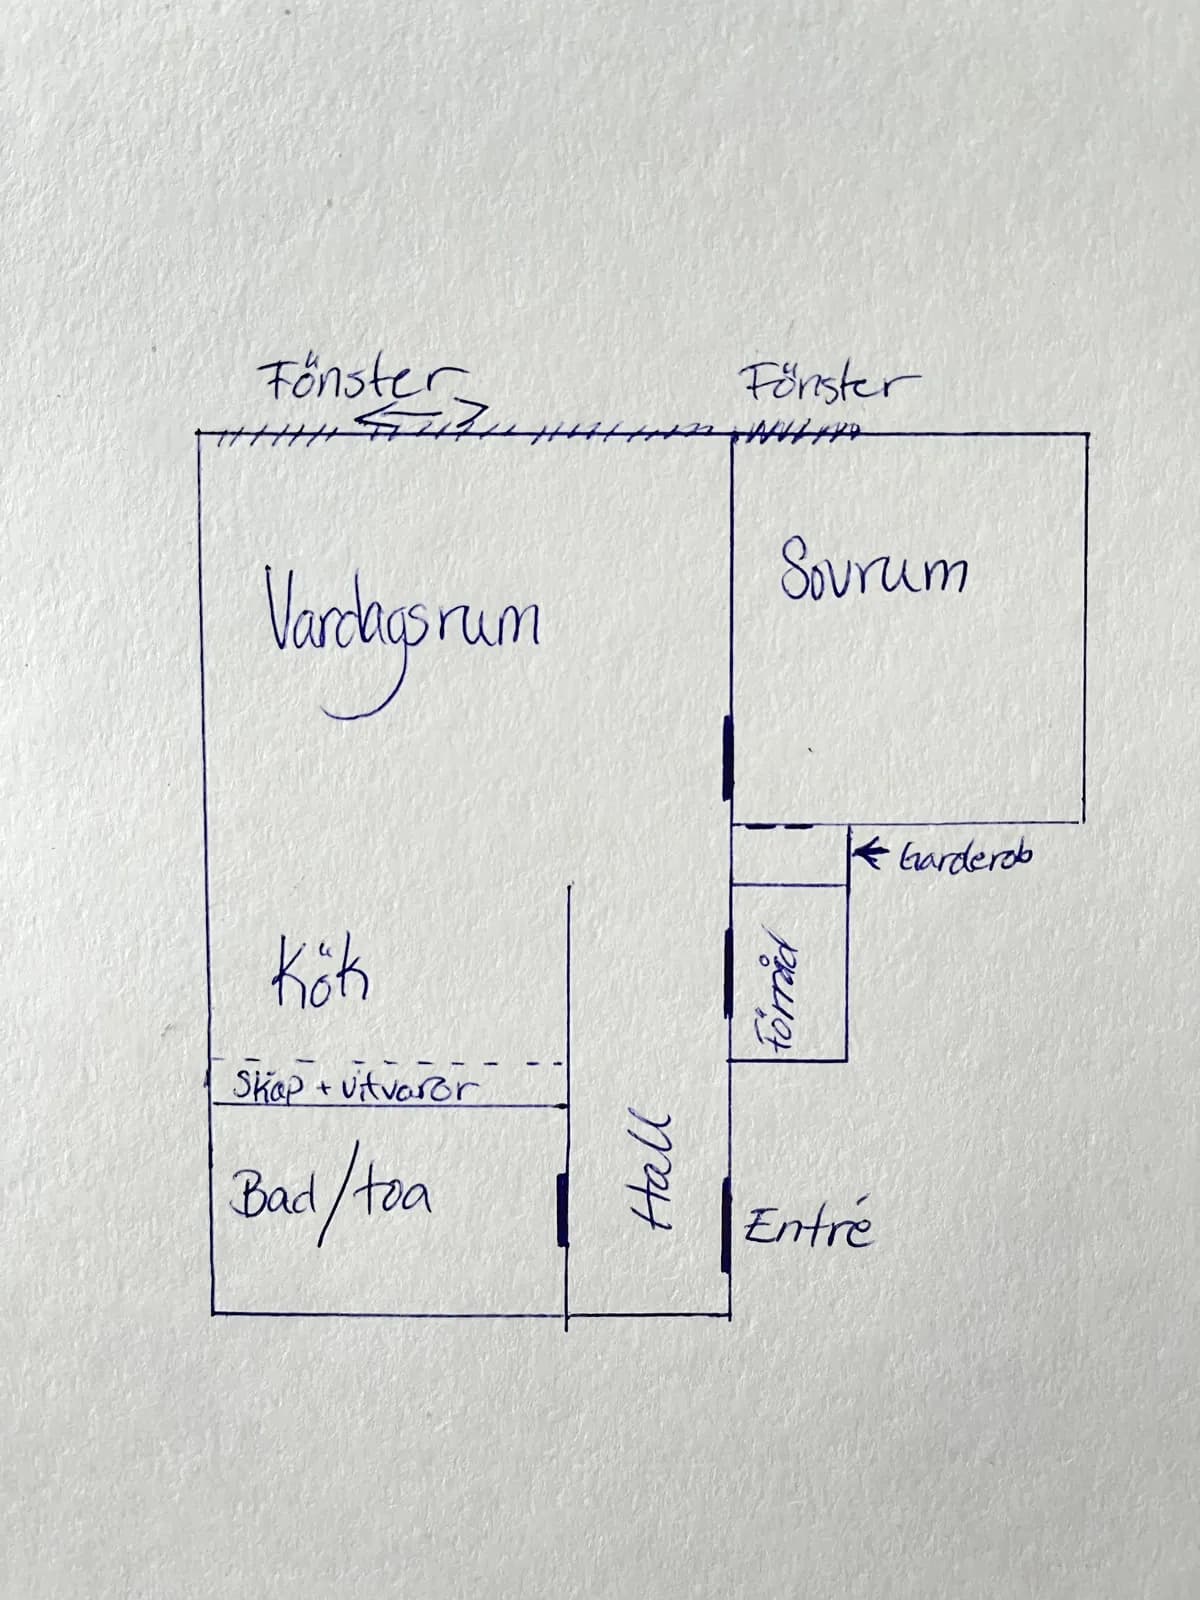 Fönster
Fönster
Sovrum
Vardagsrum
Garderob
Kök
Förråd
Skåp + vitvaror
Hall
Bad/toa
Entré